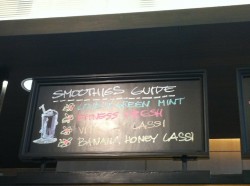 SMOOTHIES GUIDE
GREEN MINT
FRESH
LASSI
BANANA HONEY LASSI